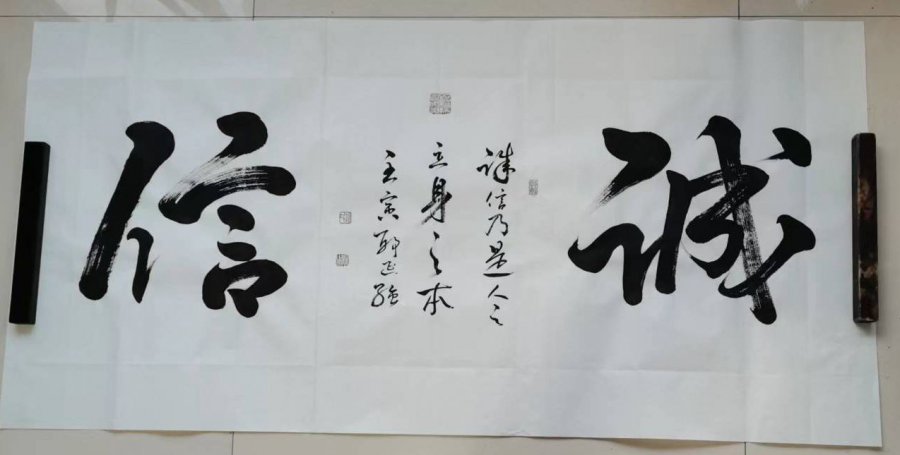 诚
诚信乃是人之
立身之本
壬寅延强
信